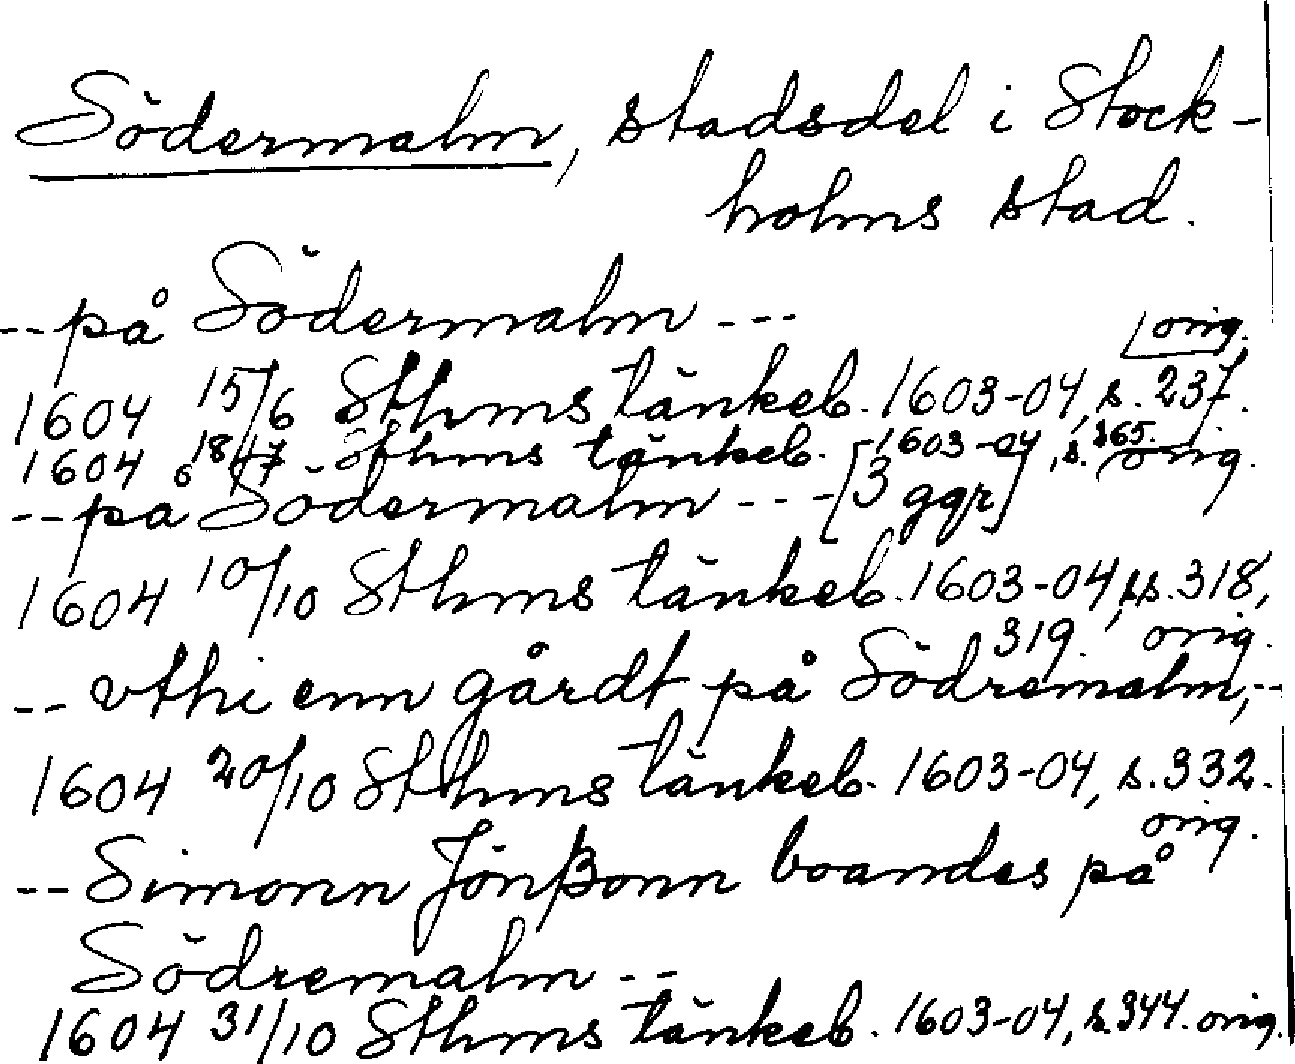 Södermalm, stadsdel i Stock-
holms stad.
-- på Södermalm ---
orig.
1604 15/6 Sthms tänkeb. 1603-04, s. 237.
1604 18/7 - Sthms tänkeb. 1603-04, s. 365. orig.
-- på Södermalm --- [3 ggr]
1604 10/10 Sthms tänkeb. 1603-04, ss. 318,
319. orig.
-- vthi enn gårdt på Södremalm, --
1604 20/10 Sthms tänkeb. 1603-04, s. 332.
orig.
-- Simonn Jönßonn boandes på
Södremalm --
1604 31/10 Sthms tänkeb. 1603-04, s. 344. orig.